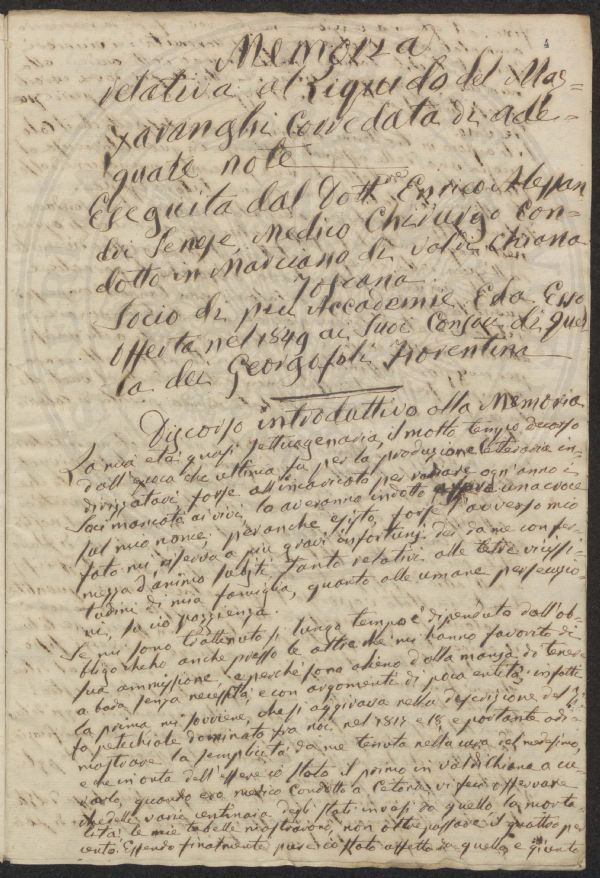 4
Memoria
relativa al Liquido del Mag=
xavanghi Corredata di ade=
guate note
Eseguita dal Dott.re Enrico Alessan
dri Senese Medico Chirurgo Con=
dotto in Marciano di Val di Chiana
Toscana
Socio di più Accademie E da Esso
offerta nel 1849 ai Suoi Consoci di Quel
la dei Georgofoli Fiorentina
Discorso introduttivo alla Memoria
La mia età quasi settuagenaria, il molto tempo decorso
dall'epoca che ultima fu per la produzione letteraria in=
dirizzatavi forse all'incaricato per radiare ogn'anno i
Soci mancati ai vivi, la averanno indotto una croce
sul mio nome; per anche esisto, forse l'avverso mio
fato mi riserva a più gravi infortunj dei da me con fer=
mezza d'animo subiti tanto relativi alle tetre vicissi=
tudini di mia famiglia, quanto alle umane persecuzio=
ni, fu ciò pazzienza.
Se mi sono trattenuto sì lungo tempo è dipenduto dall'ob=
bligo che ho anche presso le altre che mi hanno favorito di
sua ammissione, e perchè sono alieno dalla manza di tenere
a bada senza necessità e con argomenti di poca entità; infatti
la prima mi sovviene, che si aggirava nella descrizione del Ti=
fo petecchiale dominato fra noi nel 1817 e 18, e portante a di=
mostrare la semplicità da me tenuta nella cura del medesimo,
e che in onta dell'essere io stato il primo in Val di Chiana a cu=
rarlo, quando ero medico Condotto a Cetona vi feci osservare
che delle varie centinaia degli stati invasi da quello la morta=
lità le mie tabelle mostravono, non oltrepassare il quattro per
cento. Essendo finalmente pure io stato affetto da quello, e giunto